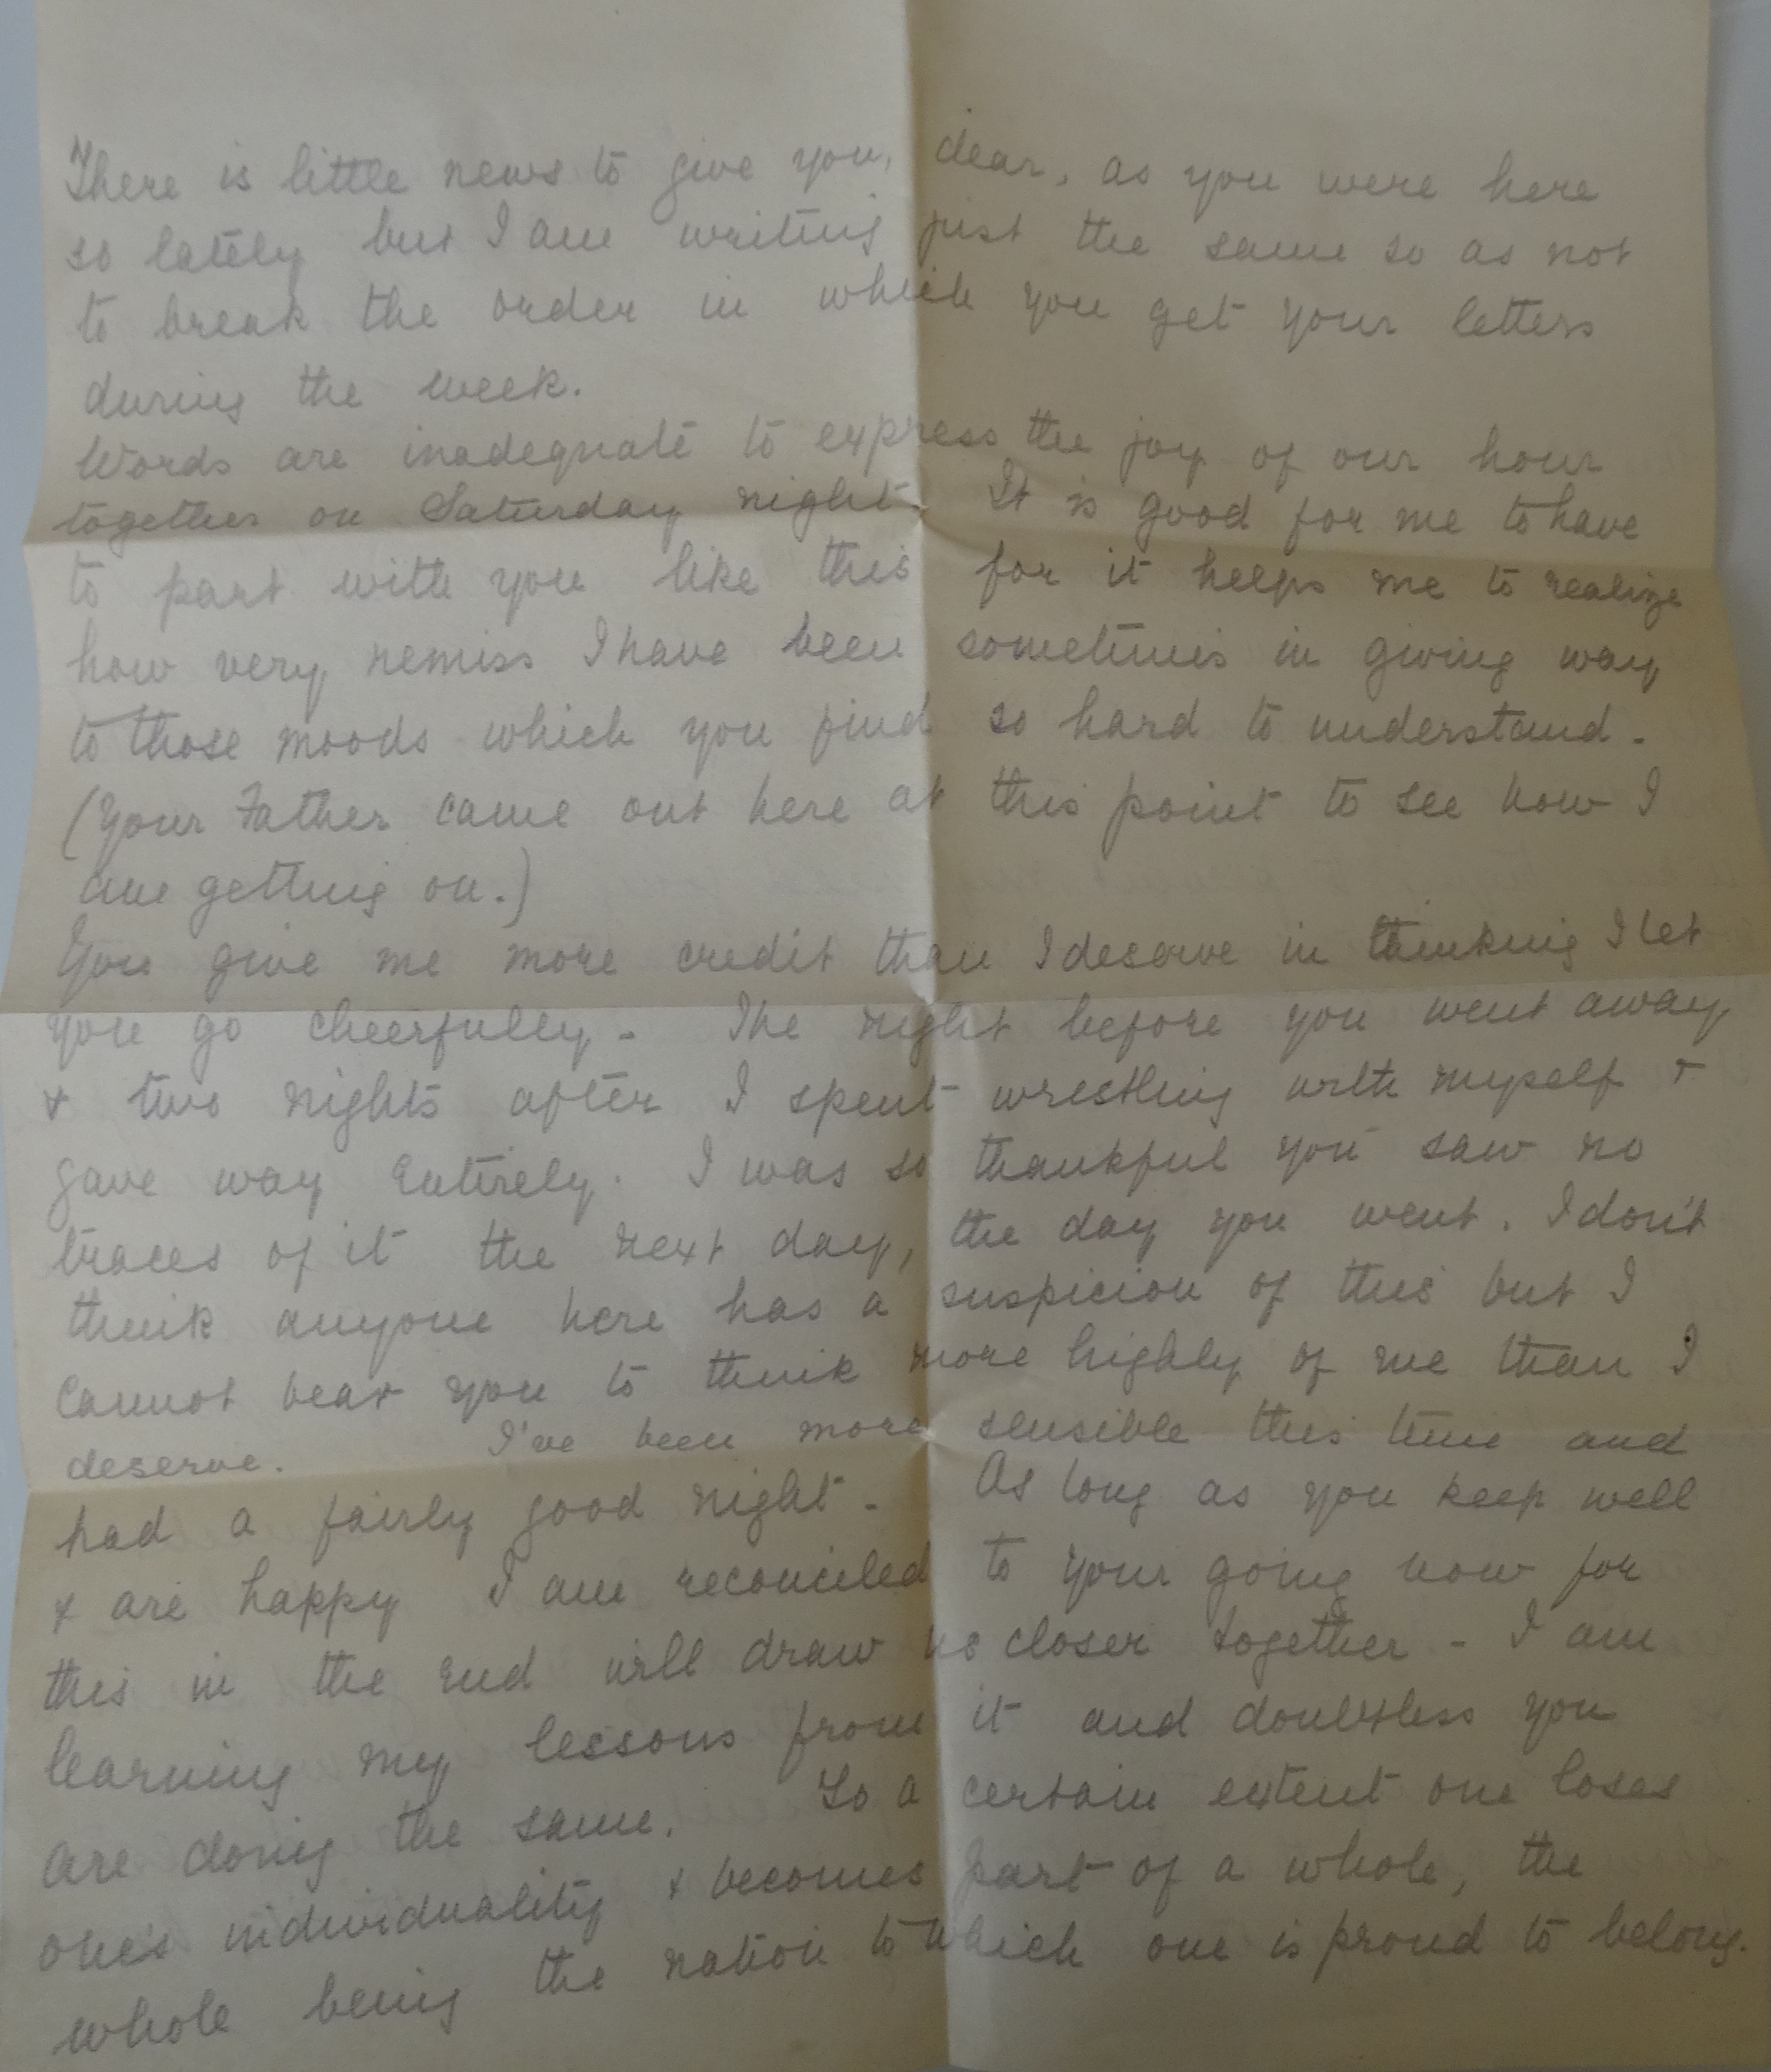 There is little news to give you, dear, as you were here
so lately but I am writing just the same so as not
to break the order in which you get your letters
during the week.
Words are inadequate to express the joy of our hour
together on Saturday night. It is good for me to have
to part with you like this for it helps me to realize
how very remiss I have been sometimes in giving way
to those moods which you find so hard to understand.
(Your Father came out here at this point to see how I
am getting on.)
You give me more credit than I deserve in thinking I let
you go cheerfully. The night before you went away
& two nights after I spent wrestling with myself &
gave way entirely. I was so thankful you saw no
traces of it the next day, the day you went. I don't
think anyone here has a suspicion of this but I
cannot bear you to think more highly of me than I
deserve. I've been more sensible this time and
had a fairly good night. As long as you keep well
& are happy I am reconciled to your going now for
this in the end will draw us closer together - I am
learning my lessons from it and doubtless you
are doing the same. To a certain extent one loses
one's individuality & becomes part of a whole, the
whole being the nation to which one is proud to belong.